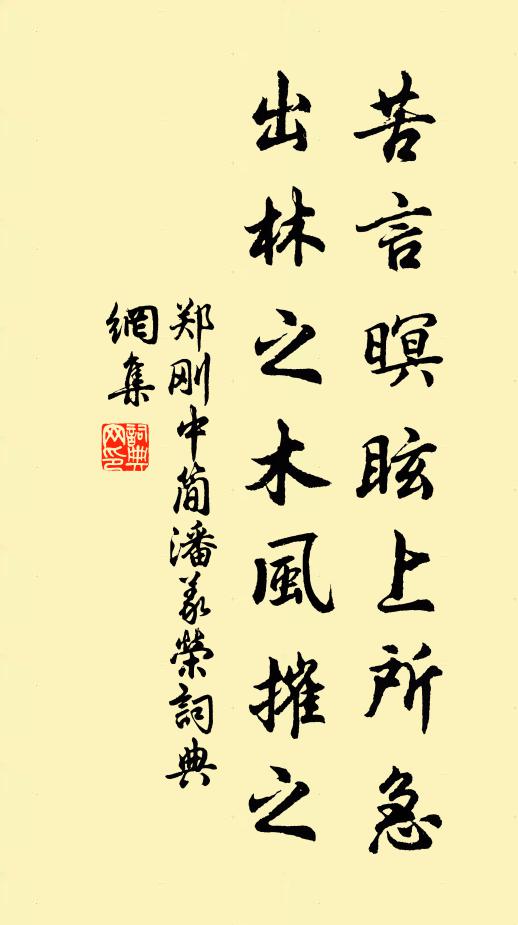 苦言瞑眩上所急
出林之木風摧之
郑刚中简潘义榮詞典
網集
詞典
网印